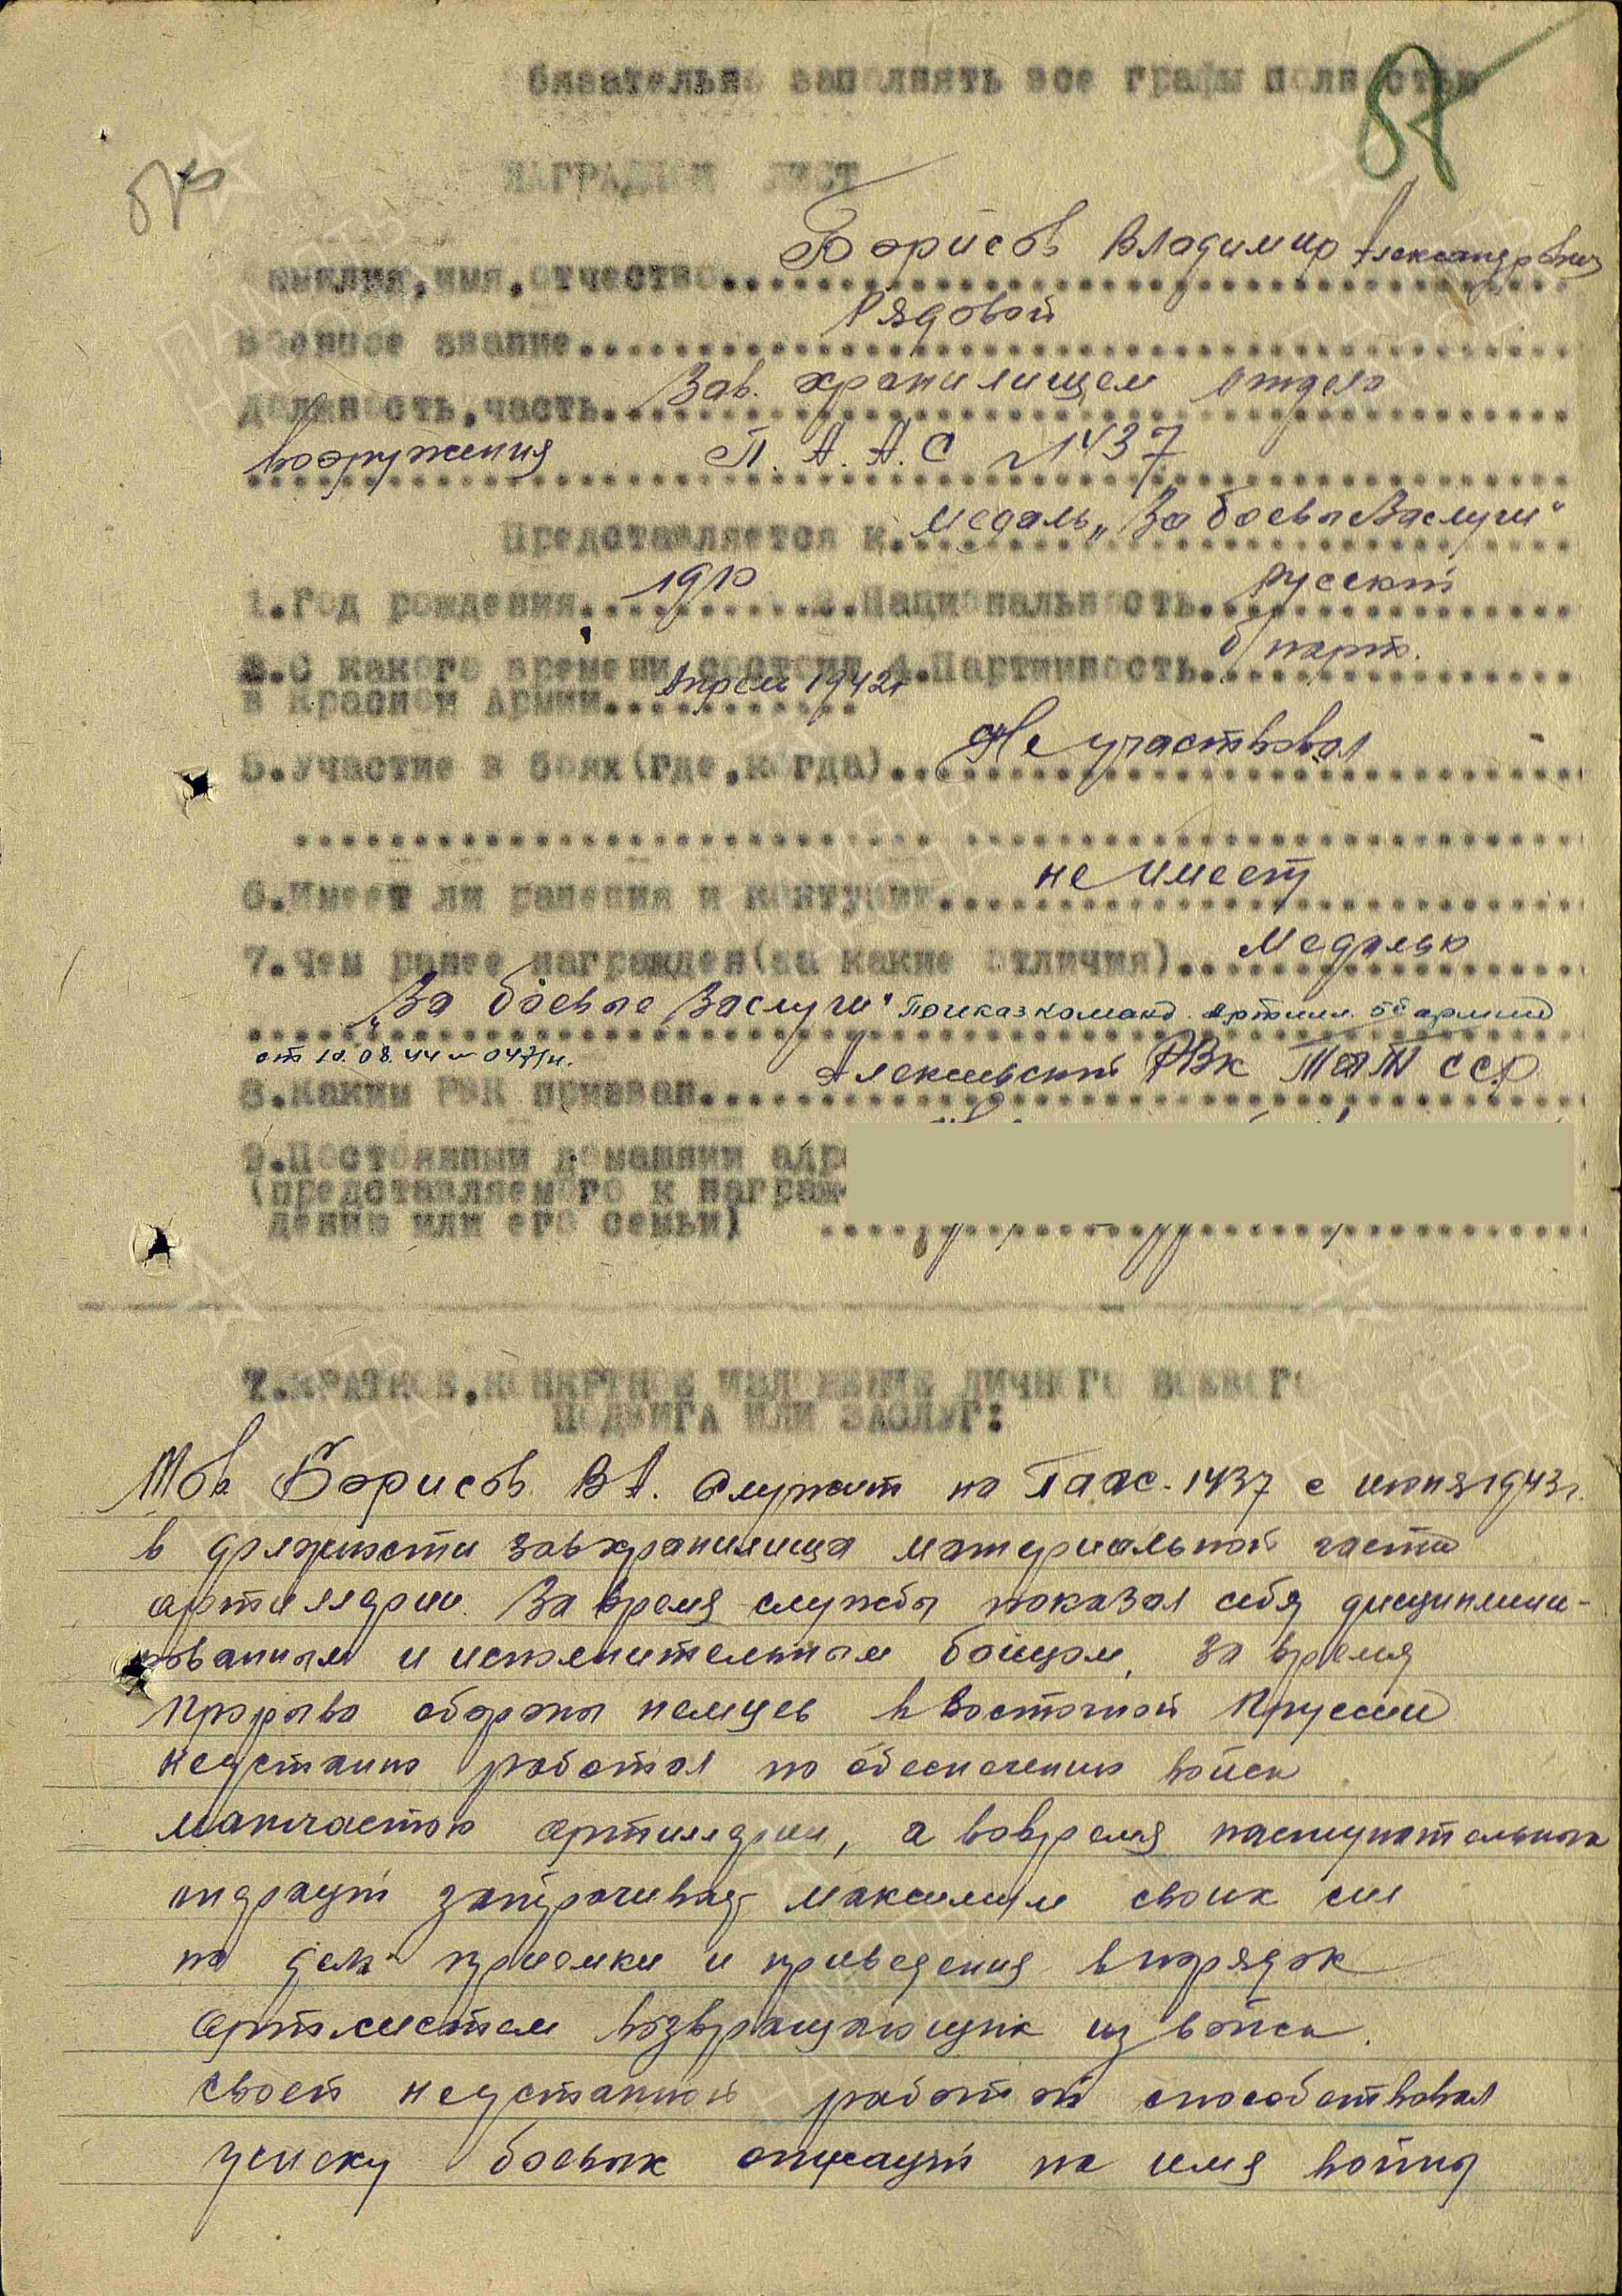 бязательно заполнять все графы полностью
87
НАГРАДНОЙ ЛИСТ
Борисов Владимир Александрович
амилия, имя, отчество
Рядовой
Военное звание
Зав. хранилищем отдела
Должность, часть
вооружения П.А.А.С №1437
Представляется к медаль „За боевы Заслуги"
1. Год рождения 1910 2. Национальность русский
3. С какого времени состоит 4. Партийность б/парт.
в Красной Армии Апрель 1942г
5. Участие в боях (где, когда) Не участвовал
6. Имеет ли ранения и контузии не имеет
7. Чем ранее награжден (за какие отличия) Медалью
„За боевые Заслуги" Приказ команд. Артилл. 5й армии
от 10.08.44 № 047/н.
8. Каким РВК призван РВК ТАТ ССР
9. Постоянный домашний адре
(представляемого к награж-
дению или его семьи)
7. КРАТКОЕ, КОНКРЕТНОЕ ИЗЛОЖЕНИЕ ЛИЧНОГО БОЕВОГО
ПОДВИГА ИЛИ ЗАСЛУГ:
Тов Борисов В А. Служит на Паас-1437 с июня 1943г.
в должности завхранилища материальной части
артиллерии. За время службы показал себя дисциплини-
рованным и исполнительным бойцом, за время
прорыва обороны немцев в Восточной Пруссии
неустанно работал по обеспечению войск
матчастью артиллерии, а вовремя наступательных
операций затрачивал максимум своих сил
на дело приемки и приведения в порядок
артсистем возвращающихся из войск.
своей неустанной работой способствовал
успеху боевых операций на имя войны
ПАМЯТЬ НАРОДА